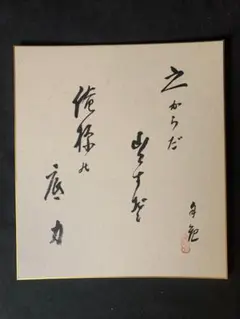 之からだ
出すぞ
俺様の
底力